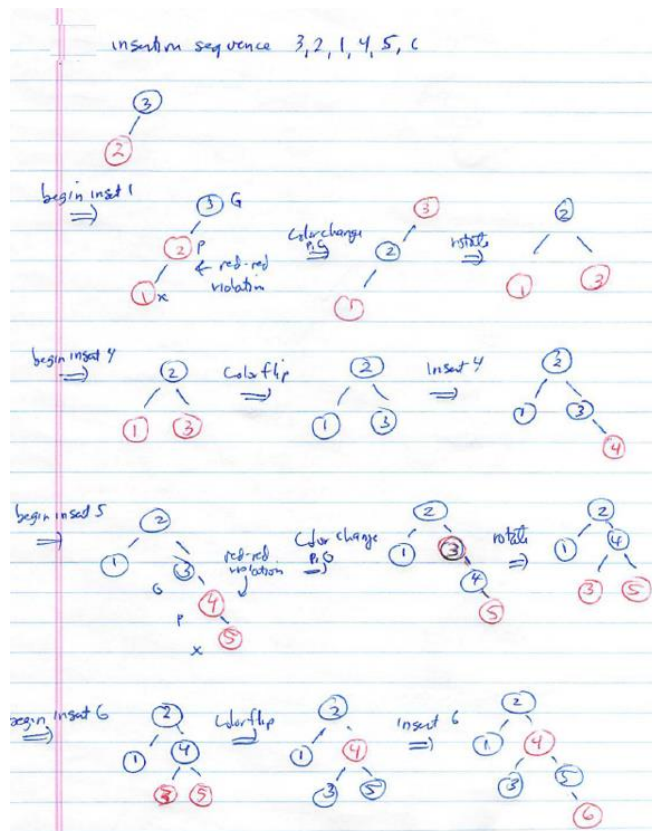 insertion sequence 3,2,1,4,5,6
3
2
begin insert 1
3 G
2 P
1 x
← red-red violation
Color change P,G
3
2
1
rotate
2
1 3
begin insert 4
2
1 3
Color flip
2
1 3
Insert 4
2
1 3
4
begin insert 5
2
1 3
G
4
P
5
x
red-red violation
Color change P,G
2
1 3
4
5
rotate
2
1 4
3 5
begin insert 6
2
1 4
3 5
Color flip
2
1 4
3 5
insert 6
2
1 4
3 5
6